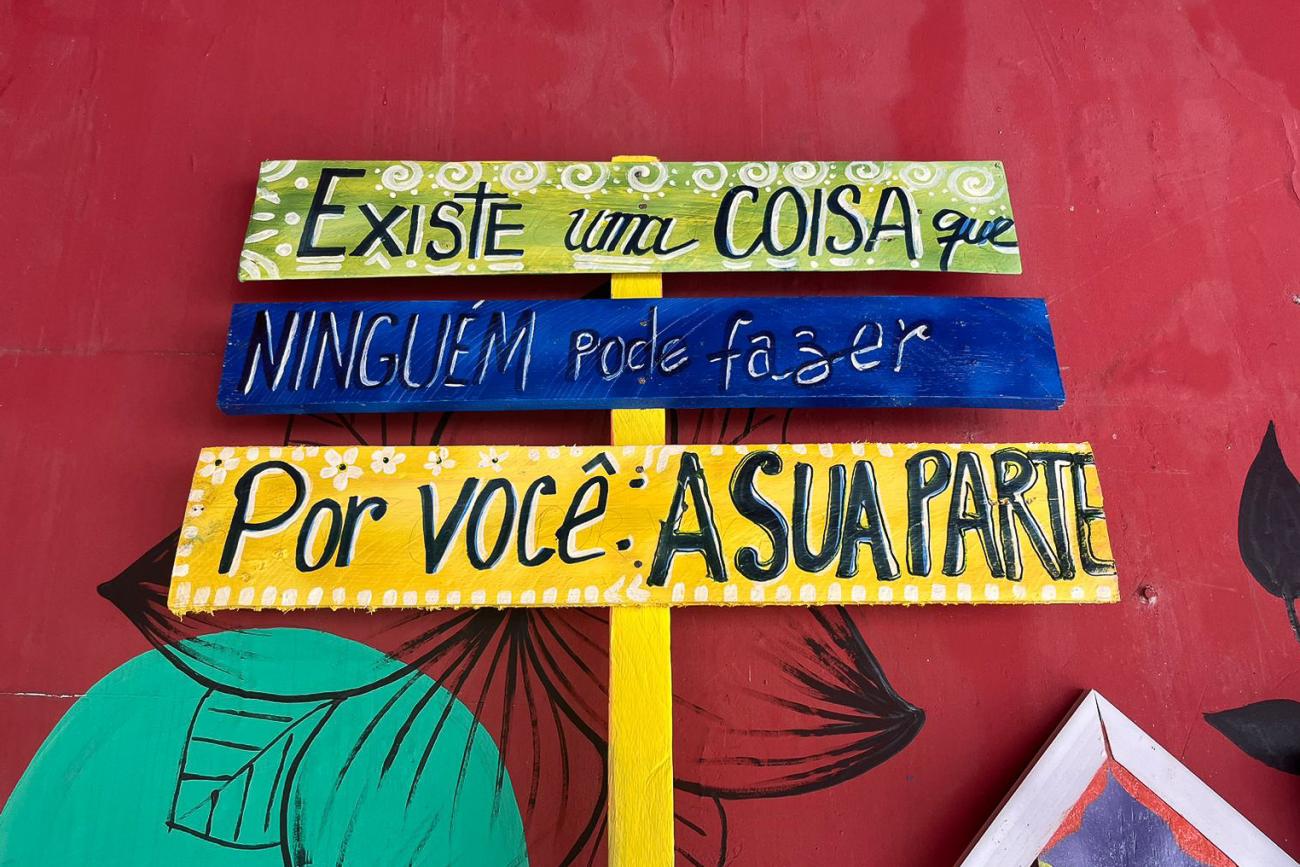 Existe uma COISA que
NINGUÉM pode fazer
Por você: A SUA PARTE